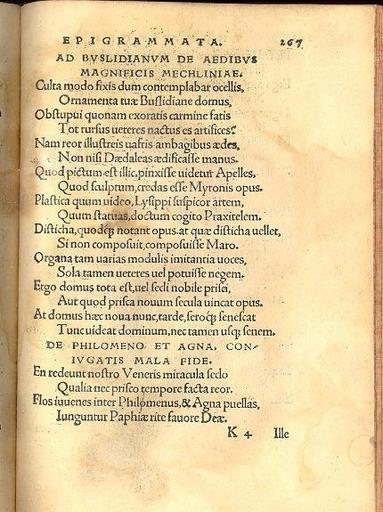 EPIGRAMMATA. 267
AD BVSLIDIANVM DE AEDIBVS
MAGNIFICIS MECHLINIAE.
Culta modo fixis dum contemplabar ocellis,
Ornamenta tuæ Buslidiane domus,
Obstupui quonam exoratis carmine fatis
Tot rursus ueteres nactus es artifices?
Nam reor illustreis uafris ambagibus ædes,
Non nisi Dædaleas ædificasse manus.
Quod pictum est illic, pinxisse uidetur Apelles,
Quod sculptum, credas esse Myronis opus.
Plastica quum uideo, Lysippi suspicor artem,
Quum statuas, doctum cogito Praxitelem.
Disticha, quodq; notant opus. at quæ disticha uellet,
Si non composuit, composuisse Maro.
Organa tam uarias modulis imitantia uoces,
Sola tamen ueteres uel potuisse negem.
Ergo domus tota est, uel secli nobile prisci,
Aut quod prisca nouum secula uincat opus.
At domus hæc noua nunc, tarde, seroq; senescat
Tunc uideat dominum, nec tamen usq; senem.
DE PHILOMENO ET AGNA, CON/
IVGATIS MALA FIDE.
En redeunt nostro Veneris miracula seclo
Qualia nec prisco tempore facta reor.
Flos iuuenes inter Philomenus, & Agna puellas,
Iunguntur Paphiæ rite fauore Deæ.
K 4 Ille